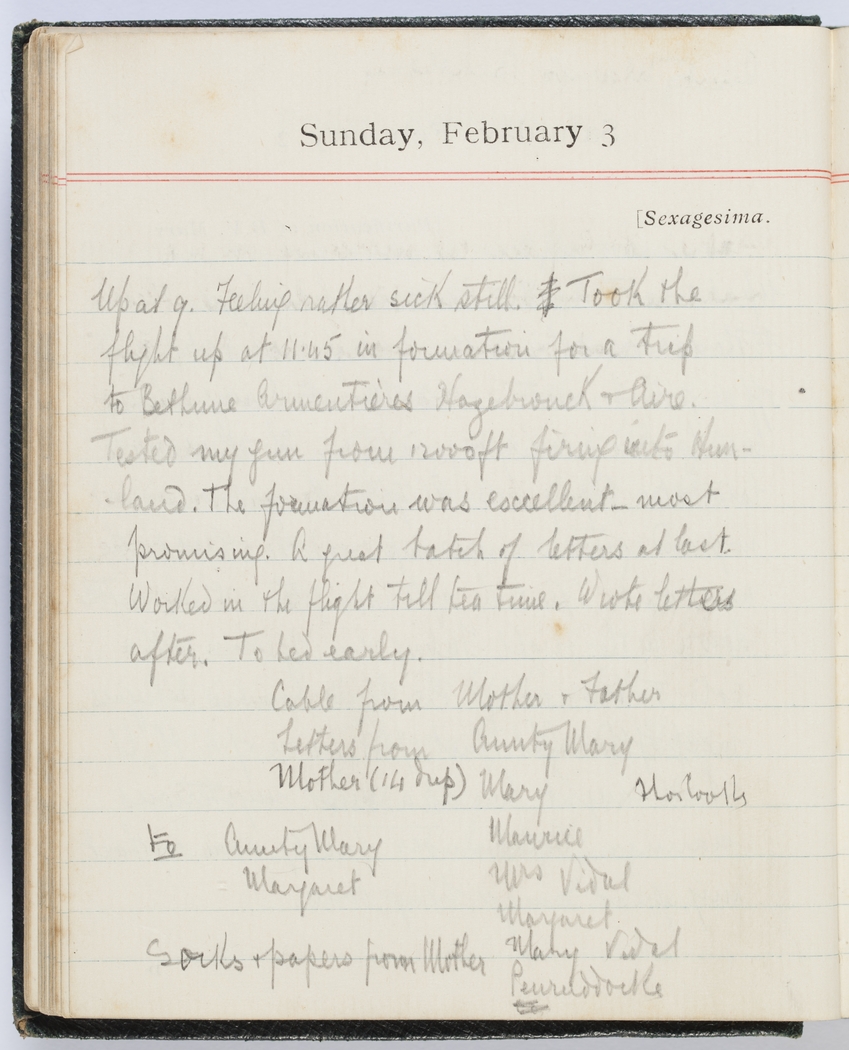 Sunday, February 3
[Sexagesima.
Up at 9. Feeling rather sick still. Took the
flight up at 11.45 in formation for a trip
to Bethune Armentières Hazebrouck + Aire.
Tested my gun from 12000ft firing into Hun-
-land. The formation was excellent - most
promising. A great batch of letters at last.
Worked in the flight till tea time. Wrote letters
after. To bed early.
Cable from Mother + Father
Letters from Aunty Mary
Mother (14 dup) Mary
Maurice
to Aunty Mary
Mrs Vidal
Margaret
Margaret.
Mary Vidal
Socks + papers from Mother
Penruddocke